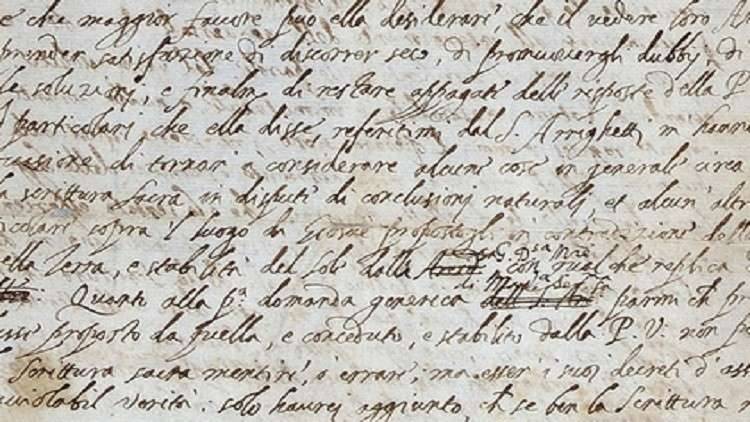 e che maggior favore può ella desiderare, che il vedere loro
prender satisfazione di discorrer seco, di promuovergli dubbij, di
le soluzioni, e finalm.e di restare appagati delle risposte della P.
particolari che ella disse, referitimi dal S. Arrighetti m hanno
occasione di tornari à considerare alcune cose in generale circa
la scrittura sacra in dispute di conclusioni naturali, et alcun' altre
sopra 'l luogo di Giosuè propostogli in contradizione della
della Terra, e stabilità del sole dalla G. D.sa Mre con qualche replica
Quanto alla p.a domanda generica di Mad.a Ser.ma parmi ch
proposto da quella, e conceduto, e stabilito dalla P. V. non
Scrittura sacra mentire, o errare, ma esser i suoi decreti d'ass
inviolabil verità. solo haurei aggiunto, ch se ben la Scrittura